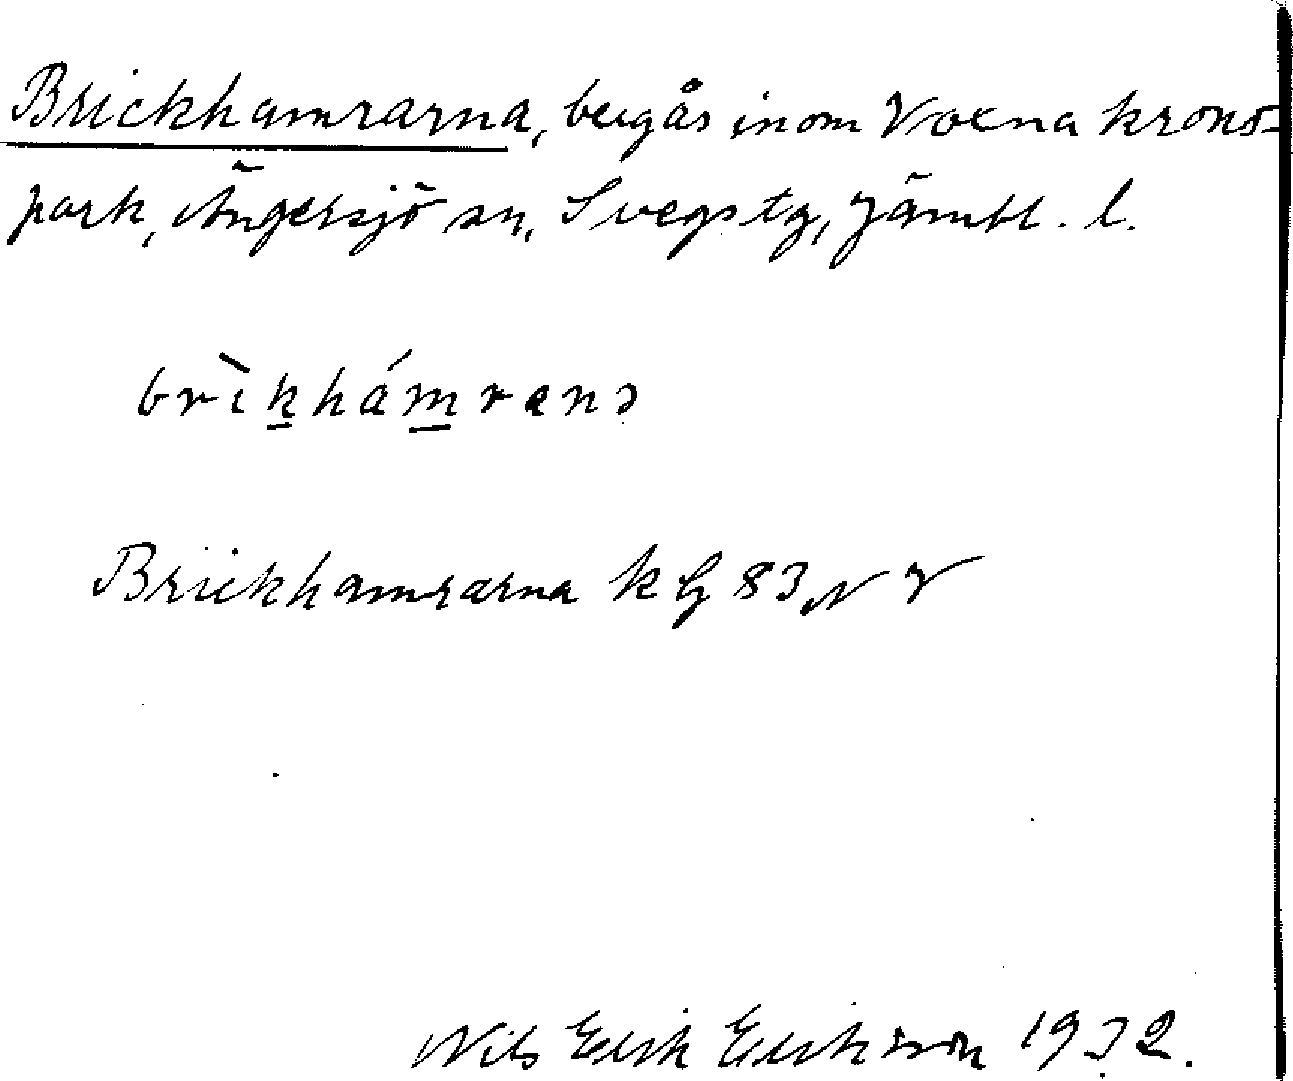 Brickhamrarna, bergås inom Voxna krono-
park, Ängersjö sn, Svegs tg, Jämtl. l.
brìkhámrană
Brickhamrarna k G 83 NV
Nils Erik Eriksson 1932.